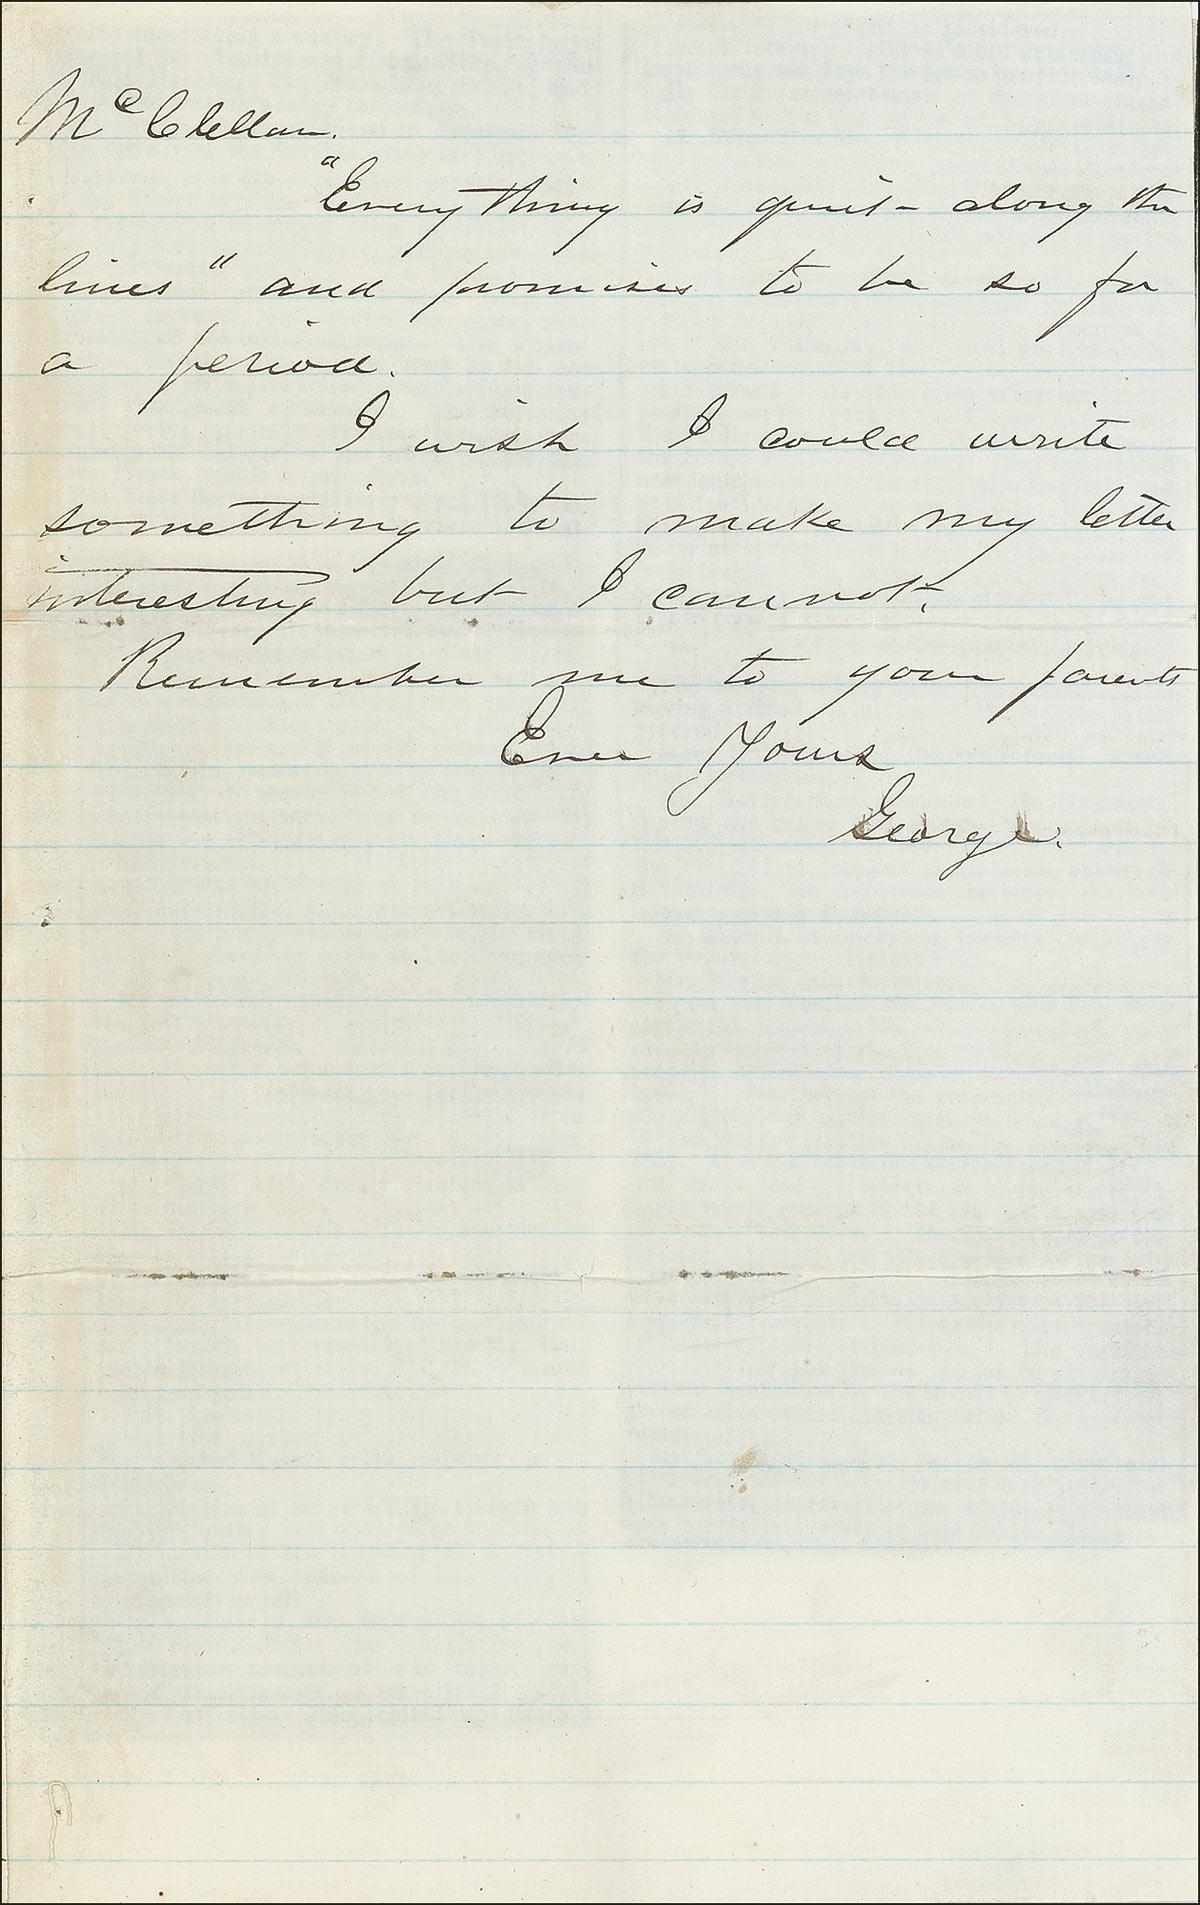 McClellan.
"Every thing is quiet along the
lines" and promises to be so for
a period.
I wish I could write
something to make my letter
interesting but I cannot.
Remember me to your parents
Ever Yours
George.